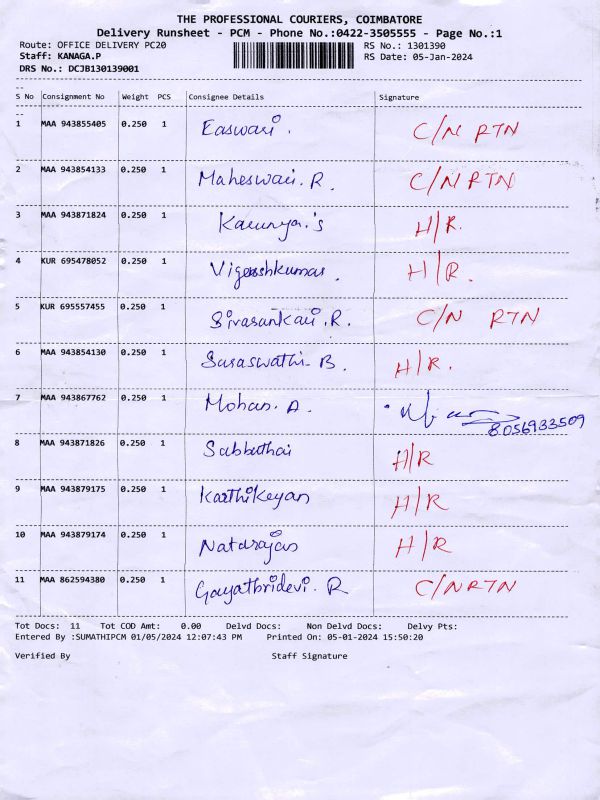 THE PROFESSIONAL COURIERS, COIMBATORE
Delivery Runsheet - PCM - Phone No.:0422-3505555 - Page No.:1
Route: OFFICE DELIVERY PC20 RS No.: 1301390
Staff: KANAGA.P RS Date: 05-Jan-2024
DRS No.: DCJB130139001
S No Consignment No Weight PCS Consignee Details Signature
1 MAA 943855405 0.250 1 Easwari. C/N RTN
2 MAA 943854133 0.250 1 Maheswari. R. C/N RTN
3 MAA 943871824 0.250 1 Karunya.s H/R.
4 KUR 695478052 0.250 1 Vigeshkumar. H/R.
5 KUR 695557455 0.250 1 Sivasankari. R. C/N RTN
6 MAA 943854130 0.250 1 Saraswathi. B. H/R.
7 MAA 943867762 0.250 1 Mohan. A. 8056933509
8 MAA 943871826 0.250 1 H/R
9 MAA 943879175 0.250 1 Karthikeyan H/R
10 MAA 943879174 0.250 1 Natarajan H/R
11 MAA 862594380 0.250 1 Gayathridevi. R C/N RTN
Tot Docs: 11 Tot COD Amt: 0.00 Delvd Docs: Non Delvd Docs: Delvy Pts:
Entered By :SUMATHIPCM 01/05/2024 12:07:43 PM Printed On: 05-01-2024 15:50:20
Verified By Staff Signature